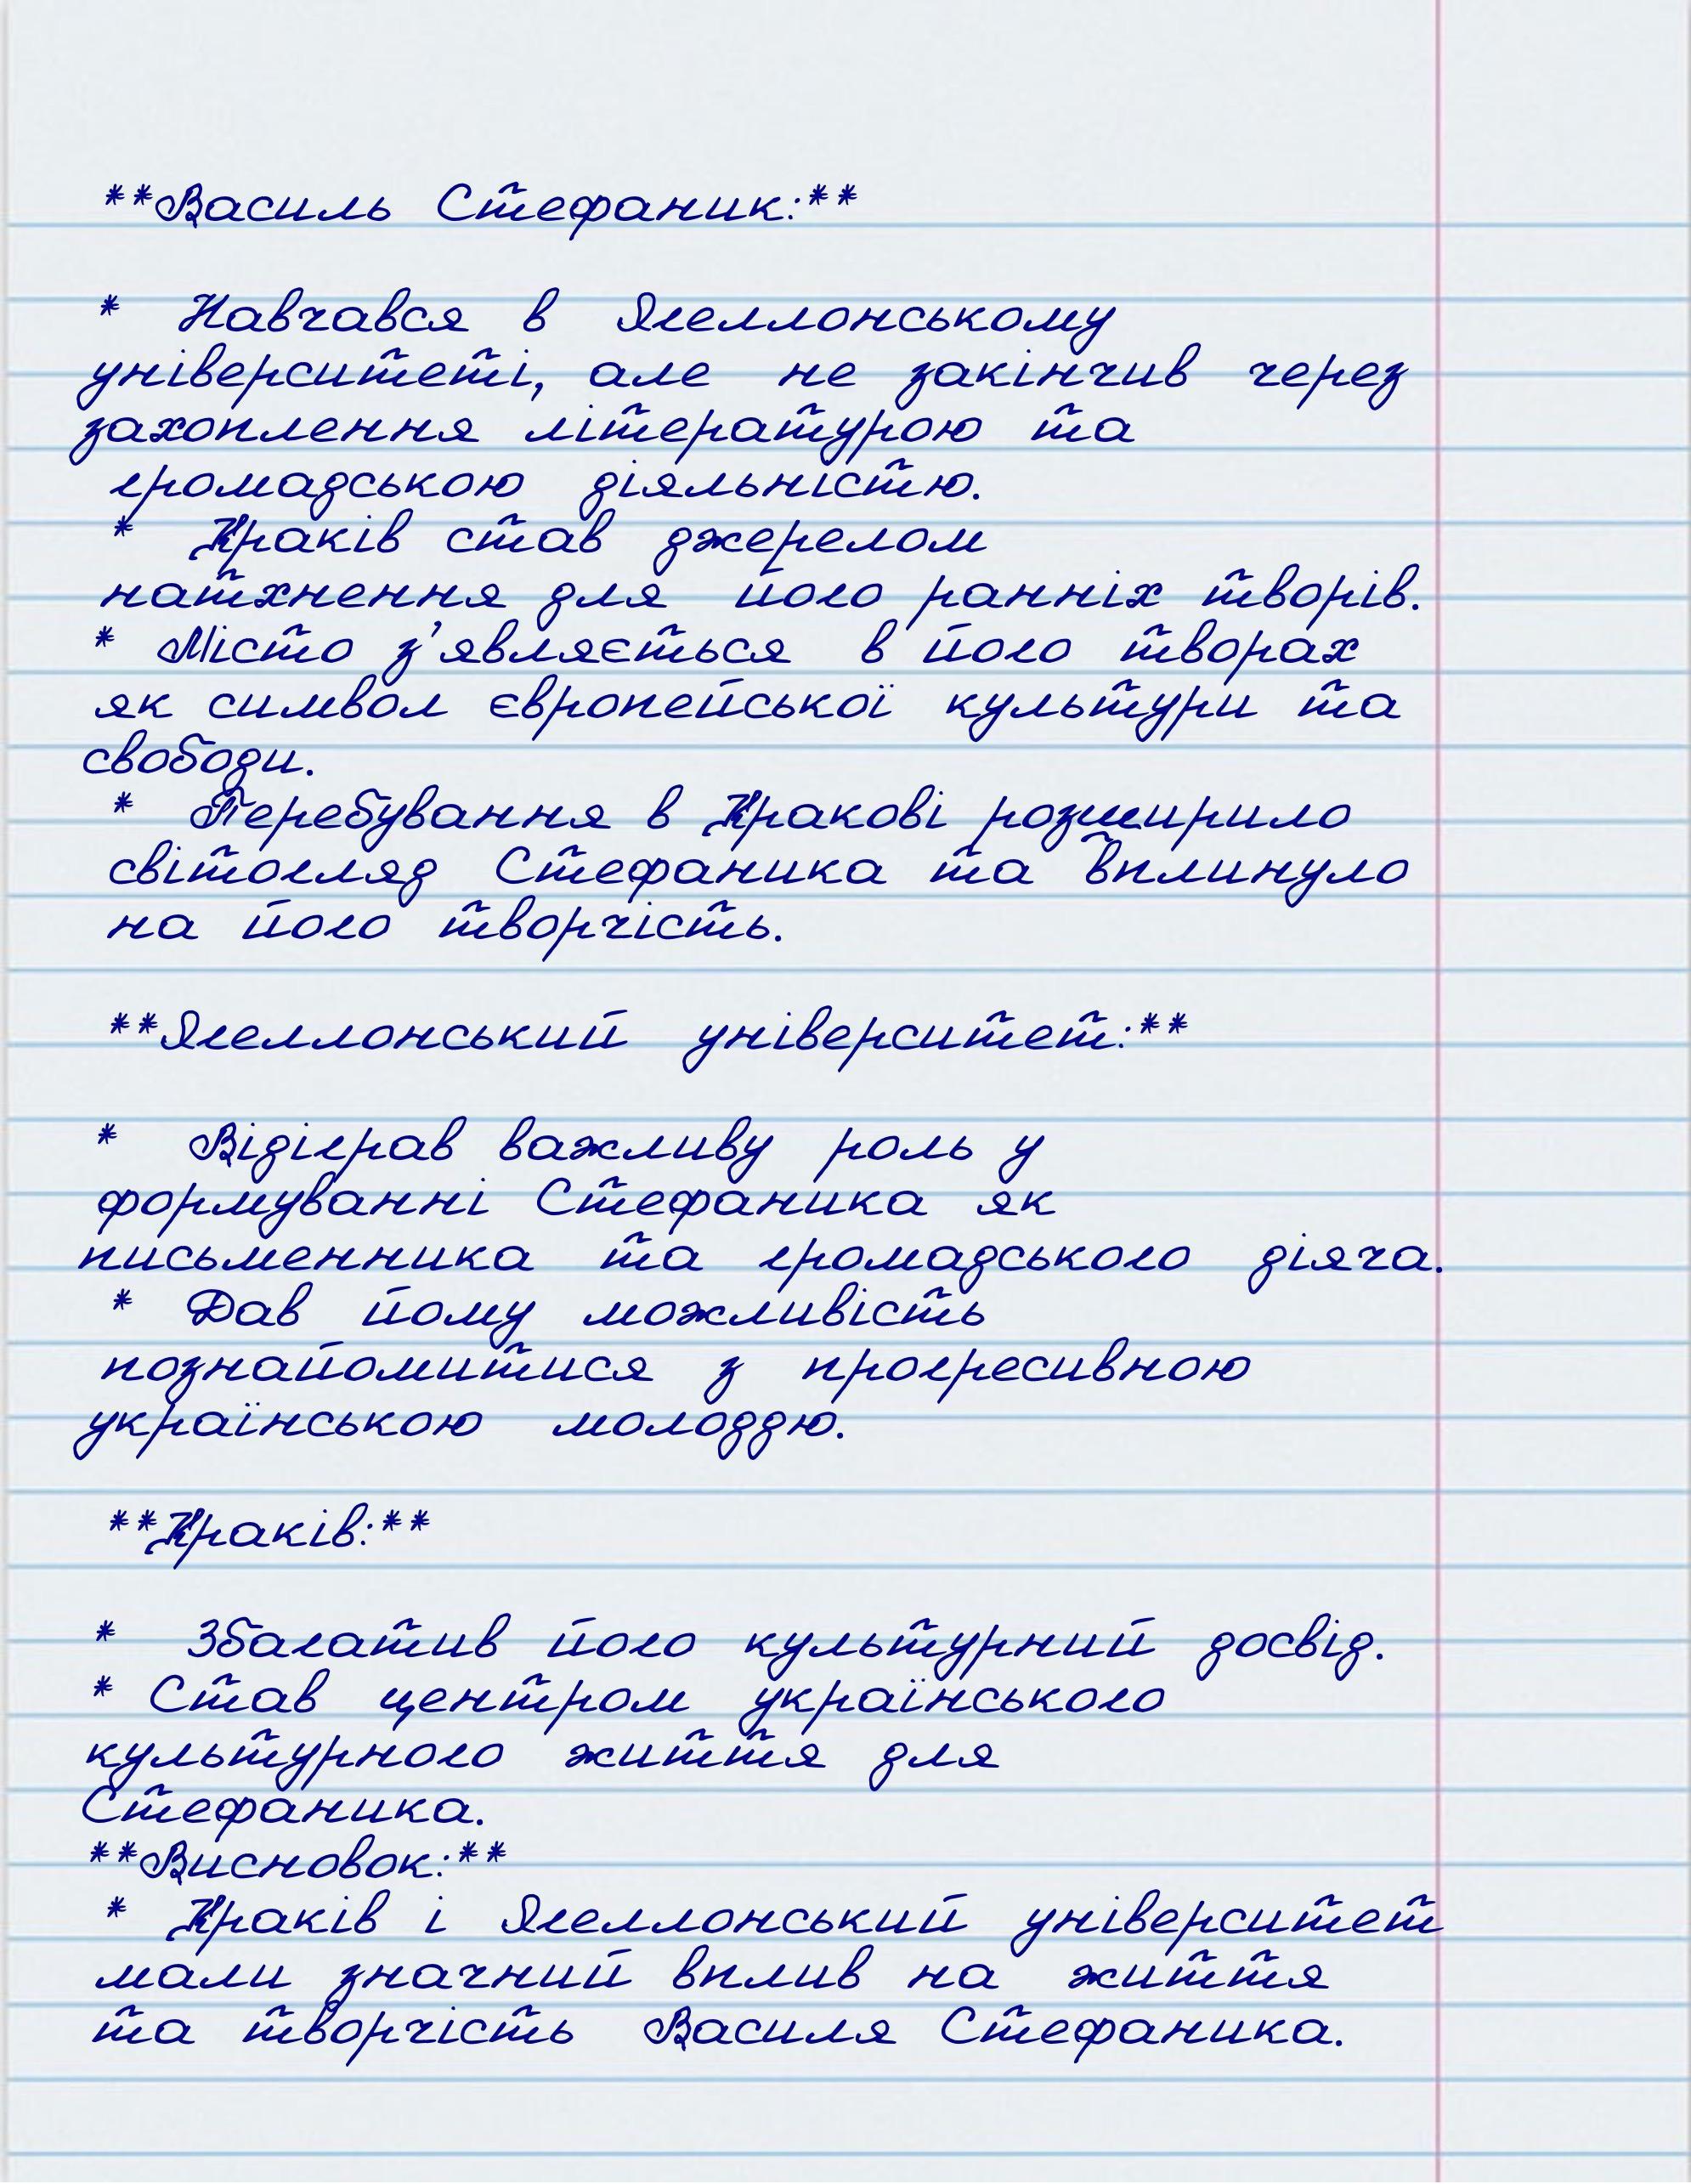 **Василь Стефаник:**
* Навчався в Ягеллонському
університеті, але не закінчив через
захоплення літературою та
громадською діяльністю.
* Краків став джерелом
натхнення для його ранніх творів.
* Місто з'являється в його творах
як символ європейської культури та
свободи.
* Перебування в Кракові розширило
світогляд Стефаника та вплинуло
на його творчість.
**Ягеллонський університет:**
* Відіграв важливу роль у
формуванні Стефаника як
письменника та громадського діяча.
* Дав йому можливість
познайомитися з прогресивною
українською молоддю.
**Краків:**
* Збагатив його культурний досвід.
* Став центром українського
культурного життя для
Стефаника.
**Висновок:**
* Краків і Ягеллонський університет
мали значний вплив на життя
та творчість Василя Стефаника.